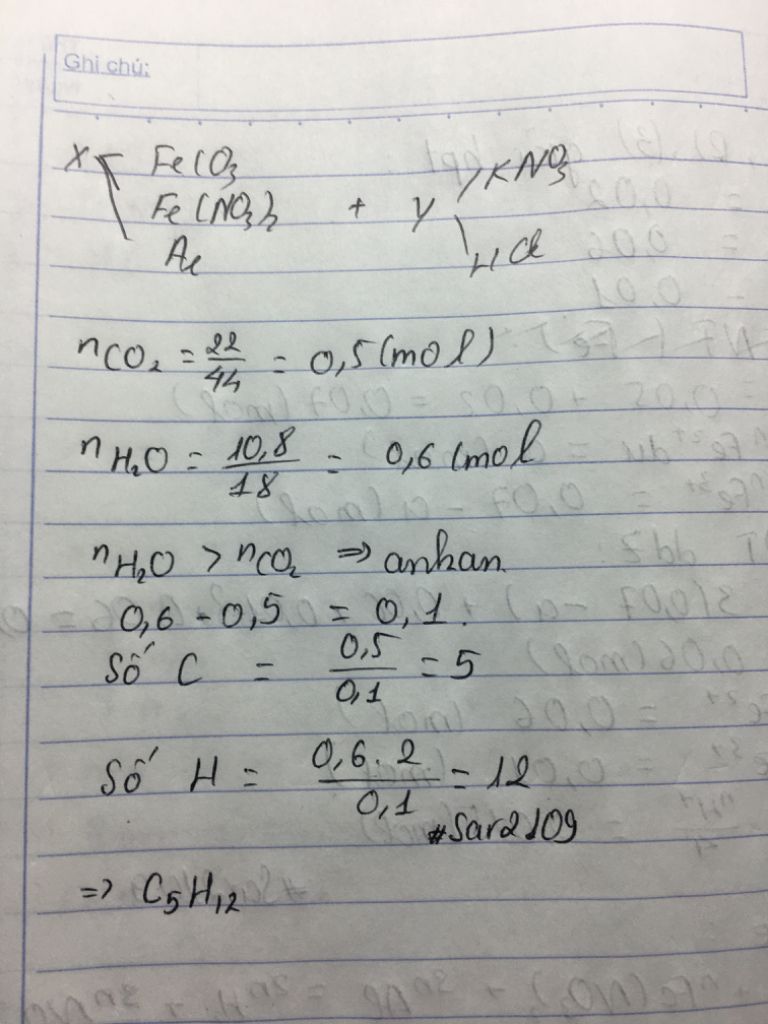 Ghi chú:
X FeCO3 KNO3
Fe(NO3)2 + Y
Al HCl
nCO2 = 22/44 = 0,5 (mol)
nH2O = 10,8/18 = 0,6 (mol
nH2O > nCO2 => ankan.
0,6 - 0,5 = 0,1.
Số C = 0,5/0,1 = 5
Số H = 0,6.2/0,1 = 12
#Sar2109
=> C5H12